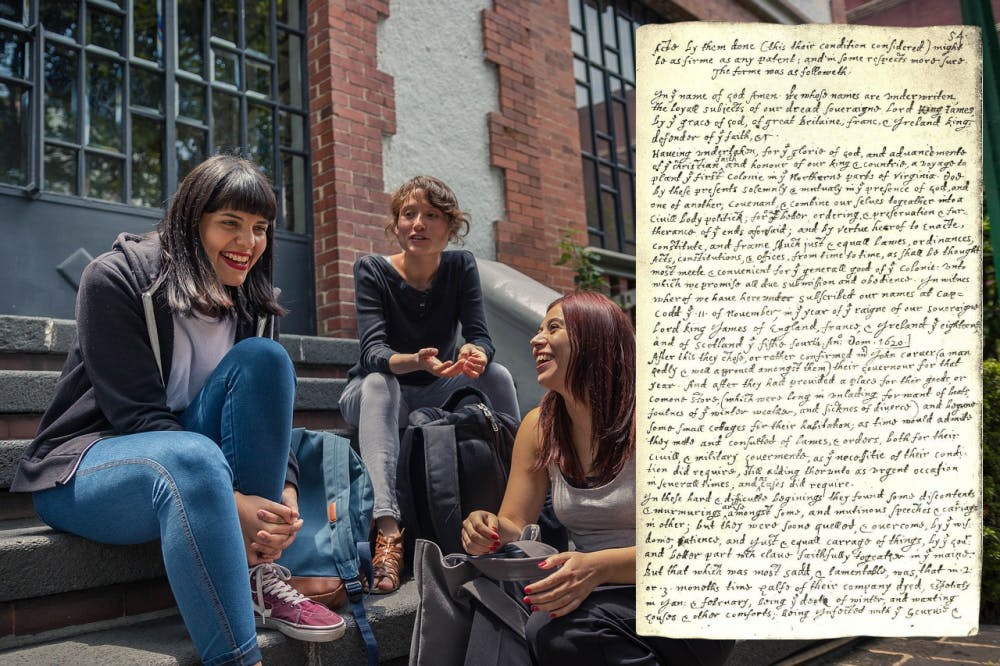 54
Acts by them done (this their condition considered) might
be as firme as any patent; and in some respects more sure.
The forme was as followeth.
In yᵉ name of god Amen. We whose names are underwriten,
the loyall subjects of our dread soveraigne Lord King James
by yᵉ grace of god, of great Britaine, franc, & Ireland king,
defender of yᵉ faith, &c
Haveing undertaken, for yᵉ glorie of god, and advancemente
of yᵉ christian faith and honour of our king & countrie, a voyage to
plant yᵉ first colonie in yᵉ Northerne parts of Virginia. Doe
by these presents solemnly & mutualy in yᵉ presence of god, and
one of another, covenant, & combine our selves togeather into a
civill body politick; for yᵉ better ordering, & preservation & fur-
therance of yᵉ ends aforsaid; and by vertue hearof to enacte,
constitute, and frame shuch just & equall lawes, ordinances,
Acts, constitutions, & offices, from time to time, as shall be thought
most meete & convenient for yᵉ generall good of yᵉ colonie: unto
which we promise all due submission and obedience. In witnes
wherof we have hereunder subscribed our names at Cap-
Codd yᵉ .11. of November, in yᵉ year of yᵉ raigne of our soveraigne
Lord king James of England, france, & Ireland yᵉ eighteenth
and of Scotland yᵉ fiftie fourth. Ano: Dom. 1620.
After this they chose, or rather confirmed mʳ John carver (a man
godly & well approved amongst them) their governour for that
year. And after they had provided a place for their goods, or
comone store, (which were long in unlading for want of boats,
foulnes of yᵉ winter weather, and sicknes of diverce) and begune
some small cottages for their habitation; as time would admitte
they mette and consulted of lawes, & orders, both for their
civill, & military govermente, as yᵉ necessitie of their condi-
tion did require, still adding therunto as urgent occasion
in severall times, and as cases did require.
In these hard & difficulte beginings they found some discontents
& murmurings arise amongst some, and mutinous speeches & cariage
in other; but they were soone quelled, & overcome, by yᵉ wis-
dome, patience, and just & equall carrage of things, by yᵉ govʳ
and better part wᶜʰ clave faithfully togeather in yᵉ maine.
But that which was most sadd, & lamentable, was, that in .2.
or .3. moneths time halfe of their company dyed, espetialy
in Jan: & february, being yᵉ depth of winter, and wanting
houses & other comforts; being Infected with yᵉ scurvie &